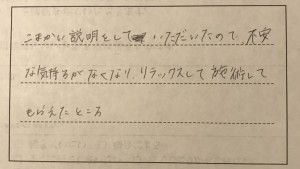 こまかい説明をしていただいたので、不安
な気持ちがなくなり、リラックスして施術して
もらえたところ